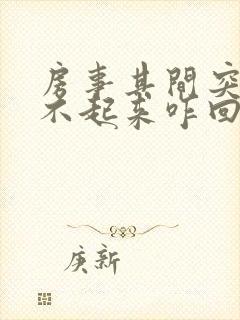 房事其間突
不起来咋回
庚新